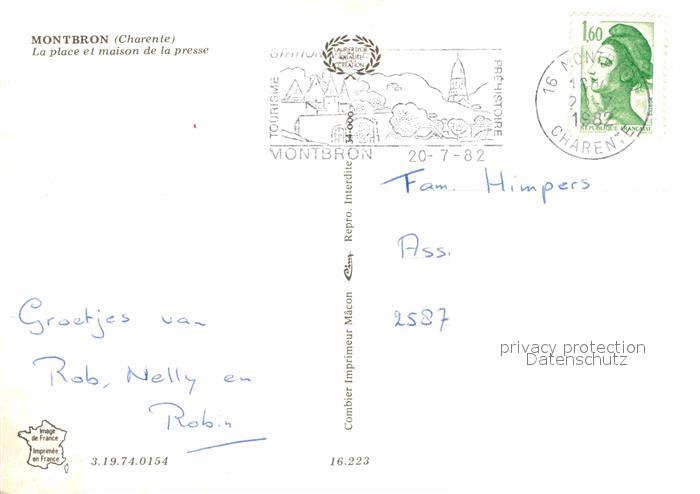 MONTBRON (Charente)
La place et maison de la presse
STATION
LAURIER D'OR
QUALITÉ
CRÉATION
TOURISME
PRÉHISTOIRE
MONTBRON 20-7-82
1,60
16 MONT
1982
CHARENTE
REPUBLIQUE FRANÇAISE
Fam. Himpers
Ass.
2587
privacy protection
Datenschutz
Groetjes van
Rob, Nelly en
Robin
Combier Imprimeur Mâcon Cim Repro. Interdite 34-000
Image
de France
Imprimée
en France
3.19.74.0154
16.223